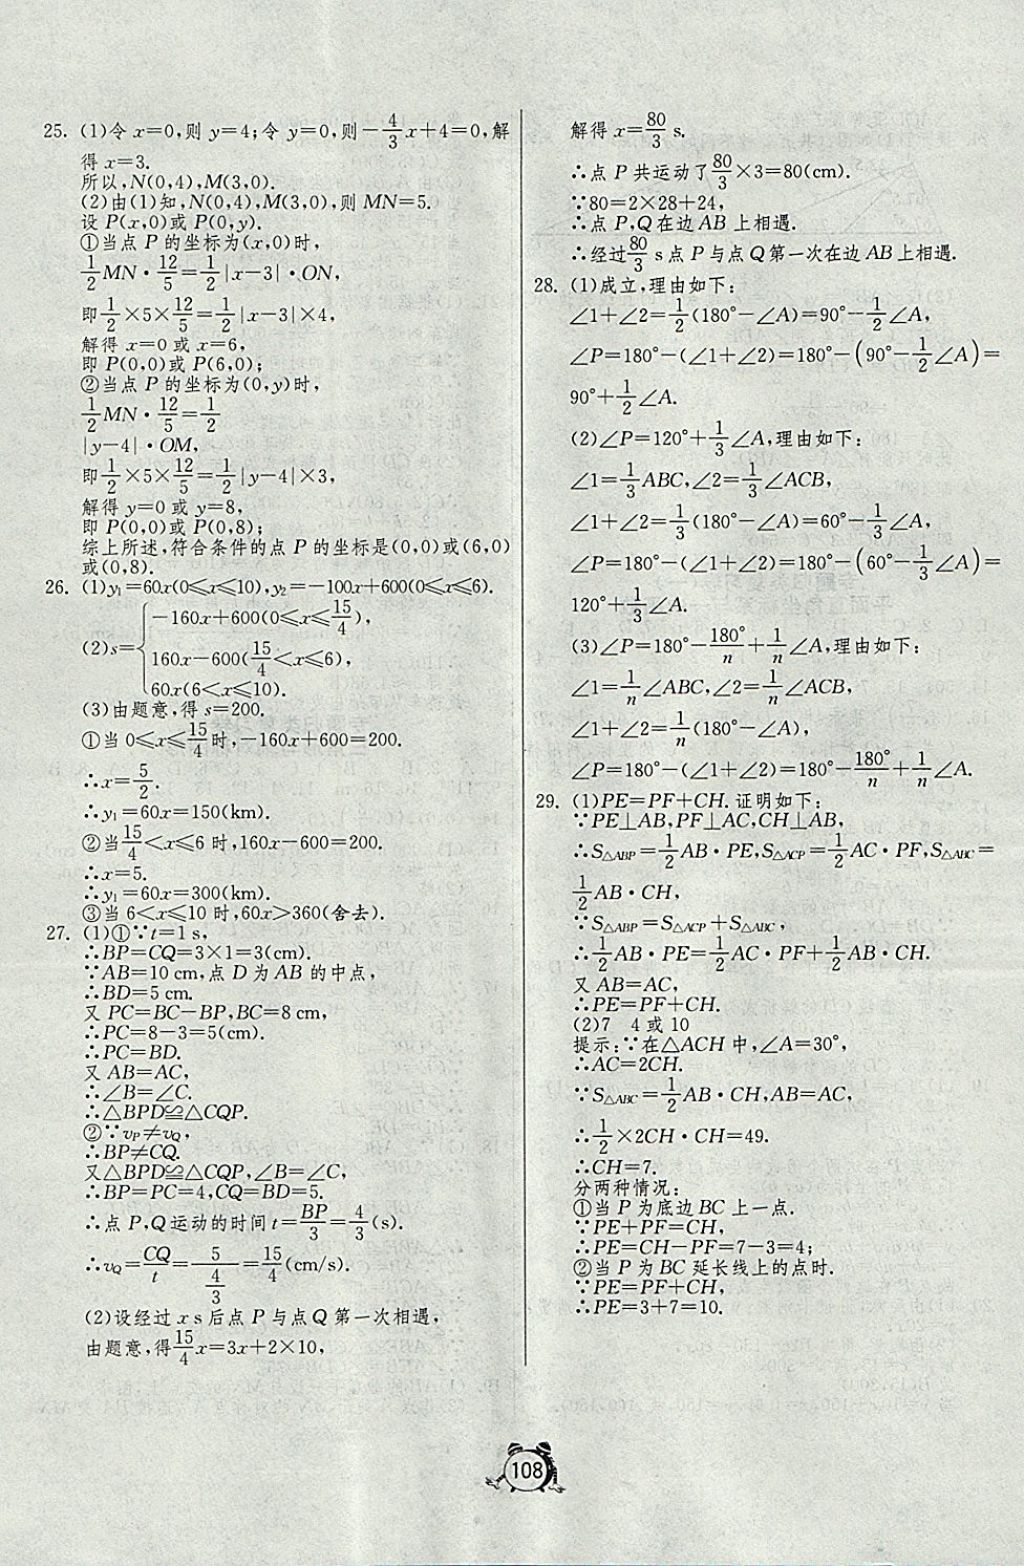 25. (1)令 x=0,则 y=4;令 y=0,则−4/3x+4=0,解
得 x=3.
所以,N(0,4),M(3,0).
(2)由(1)知,N(0,4),M(3,0),则 MN=5.
设 P(x,0)或 P(0,y).
①当点 P 的坐标为(x,0)时,
1/2MN·12/5=1/2|x−3|·ON,
即1/2×5×12/5=1/2|x−3|×4,
解得 x=0 或 x=6,
即 P(0,0)或 P(6,0);
②当点 P 的坐标为(0,y)时,
1/2MN·12/5=1/2
|y−4|·OM,
即1/2×5×12/5=1/2|y−4|×3,
解得 y=0 或 y=8,
即 P(0,0)或 P(0,8);
综上所述,符合条件的点 P 的坐标是(0,0)或(6,0)
或(0,8).
26. (1)y₁=60x(0≤x≤10),y₂=−100x+600(0≤x≤6).
(2)s={−160x+600(0≤x≤15/4),
160x−600(15/4<x≤6),
60x(6<x≤10).
(3)由题意,得 s=200.
①当 0≤x≤15/4时,−160x+600=200.
∴x=5/2.
∴y₁=60x=150(km).
②当15/4<x≤6 时,160x−600=200.
∴x=5.
∴y₁=60x=300(km).
③当 6<x≤10 时,60x>360(舍去).
27. (1)①∵t=1 s,
∴BP=CQ=3×1=3(cm).
∵AB=10 cm,点 D 为 AB 的中点,
∴BD=5 cm.
又 PC=BC−BP,BC=8 cm,
∴PC=8−3=5(cm).
∴PC=BD.
又 AB=AC,
∴∠B=∠C.
∴△BPD≌△CQP.
②∵v_P≠v_Q,
∴BP≠CQ.
又△BPD≌△CQP,∠B=∠C,
∴BP=PC=4,CQ=BD=5.
∴点 P,Q运动的时间 t=BP/3=4/3(s).
∴v_Q=CQ/t=5/(4/3)=15/4(cm/s).
(2)设经过 x s 后点 P 与点 Q 第一次相遇,
由题意,得15/4x=3x+2×10,
解得 x=80/3 s.
∴点 P 共运动了80/3×3=80(cm).
∵80=2×28+24,
∴点 P,Q 在边 AB 上相遇.
∴经过80/3 s 点 P 与点 Q 第一次在边 AB 上相遇.
28. (1)成立,理由如下:
∠1+∠2=1/2(180°−∠A)=90°−1/2∠A,
∠P=180°−(∠1+∠2)=180°−(90°−1/2∠A)=
90°+1/2∠A.
(2)∠P=120°+1/3∠A,理由如下:
∠1=1/3ABC,∠2=1/3∠ACB,
∠1+∠2=1/3(180°−∠A)=60°−1/3∠A,
∠P=180°−(∠1+∠2)=180°−(60°−1/3∠A)=
120°+1/3∠A.
(3)∠P=180°−180°/n+1/n∠A,理由如下:
∠1=1/n∠ABC,∠2=1/n∠ACB,
∠1+∠2=1/n(180°−∠A),
∠P=180°−(∠1+∠2)=180°−180°/n+1/n∠A.
29. (1)PE=PF+CH.证明如下:
∵PE⊥AB,PF⊥AC,CH⊥AB,
∴S△ABP=1/2AB·PE,S△ACP=1/2AC·PF,S△ABC=
1/2AB·CH,
∵S△ABP=S△ACP+S△ABC,
∴1/2AB·PE=1/2AC·PF+1/2AB·CH.
又 AB=AC,
∴PE=PF+CH.
(2)7 4 或 10
提示:∵在△ACH 中,∠A=30°,
∴AC=2CH.
∵S△ABC=1/2AB·CH,AB=AC,
∴1/2×2CH·CH=49.
∴CH=7.
分两种情况:
①当 P 为底边 BC 上一点.
∵PE+PF=CH,
∴PE=CH−PF=7−3=4;
②当 P 为 BC 延长线上的点时.
∵PE=PF+CH,
∴PE=3+7=10.
108